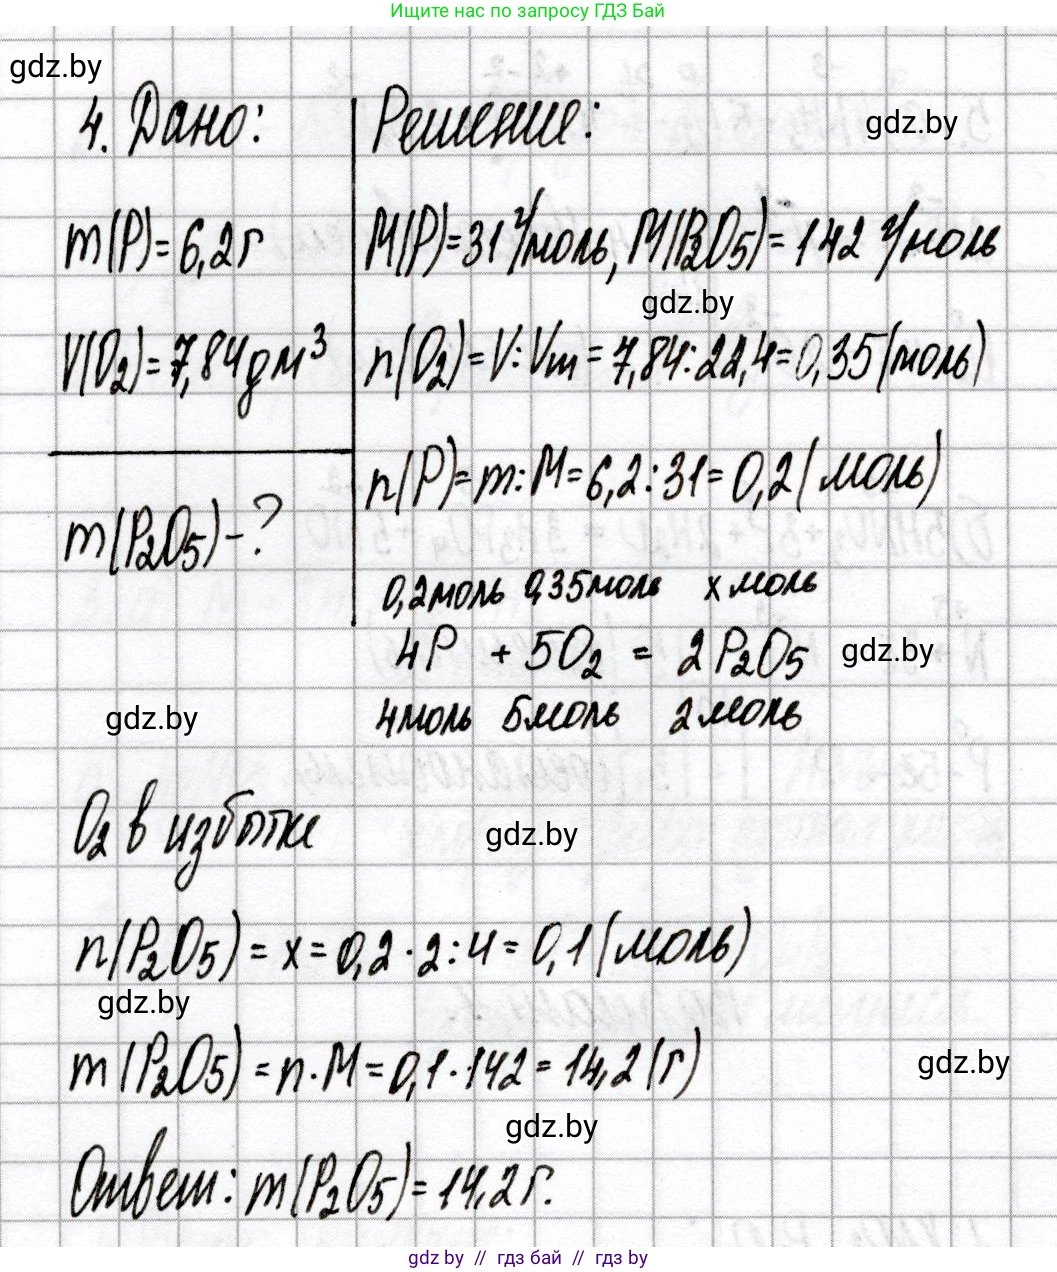 Ищите нас по запросу ГДЗ Бай
gdz.by
4. Дано:
Решение:
gdz.by
m(P)=6,2г
M(P)=31 г/моль, M(P₂O₅)=142 г/моль
gdz.by
V(O₂)=7,84дм³
n(O₂)=V:Vm=7,84:22,4=0,35(моль)
n(P)=m:M=6,2:31=0,2(моль)
m(P₂O₅)-?
0,2моль 0,35моль x моль
4P + 5O₂ = 2P₂O₅
gdz.by
4моль 5моль 2моль
gdz.by
O₂ в избытке
gdz.by
n(P₂O₅)=x=0,2·2:4=0,1(моль)
gdz.by
m(P₂O₅)=n·M=0,1·142=14,2(г)
gdz.by
gdz.by
Ответ: m(P₂O₅)=14,2г.
gdz.by // гдз бай // гдз by